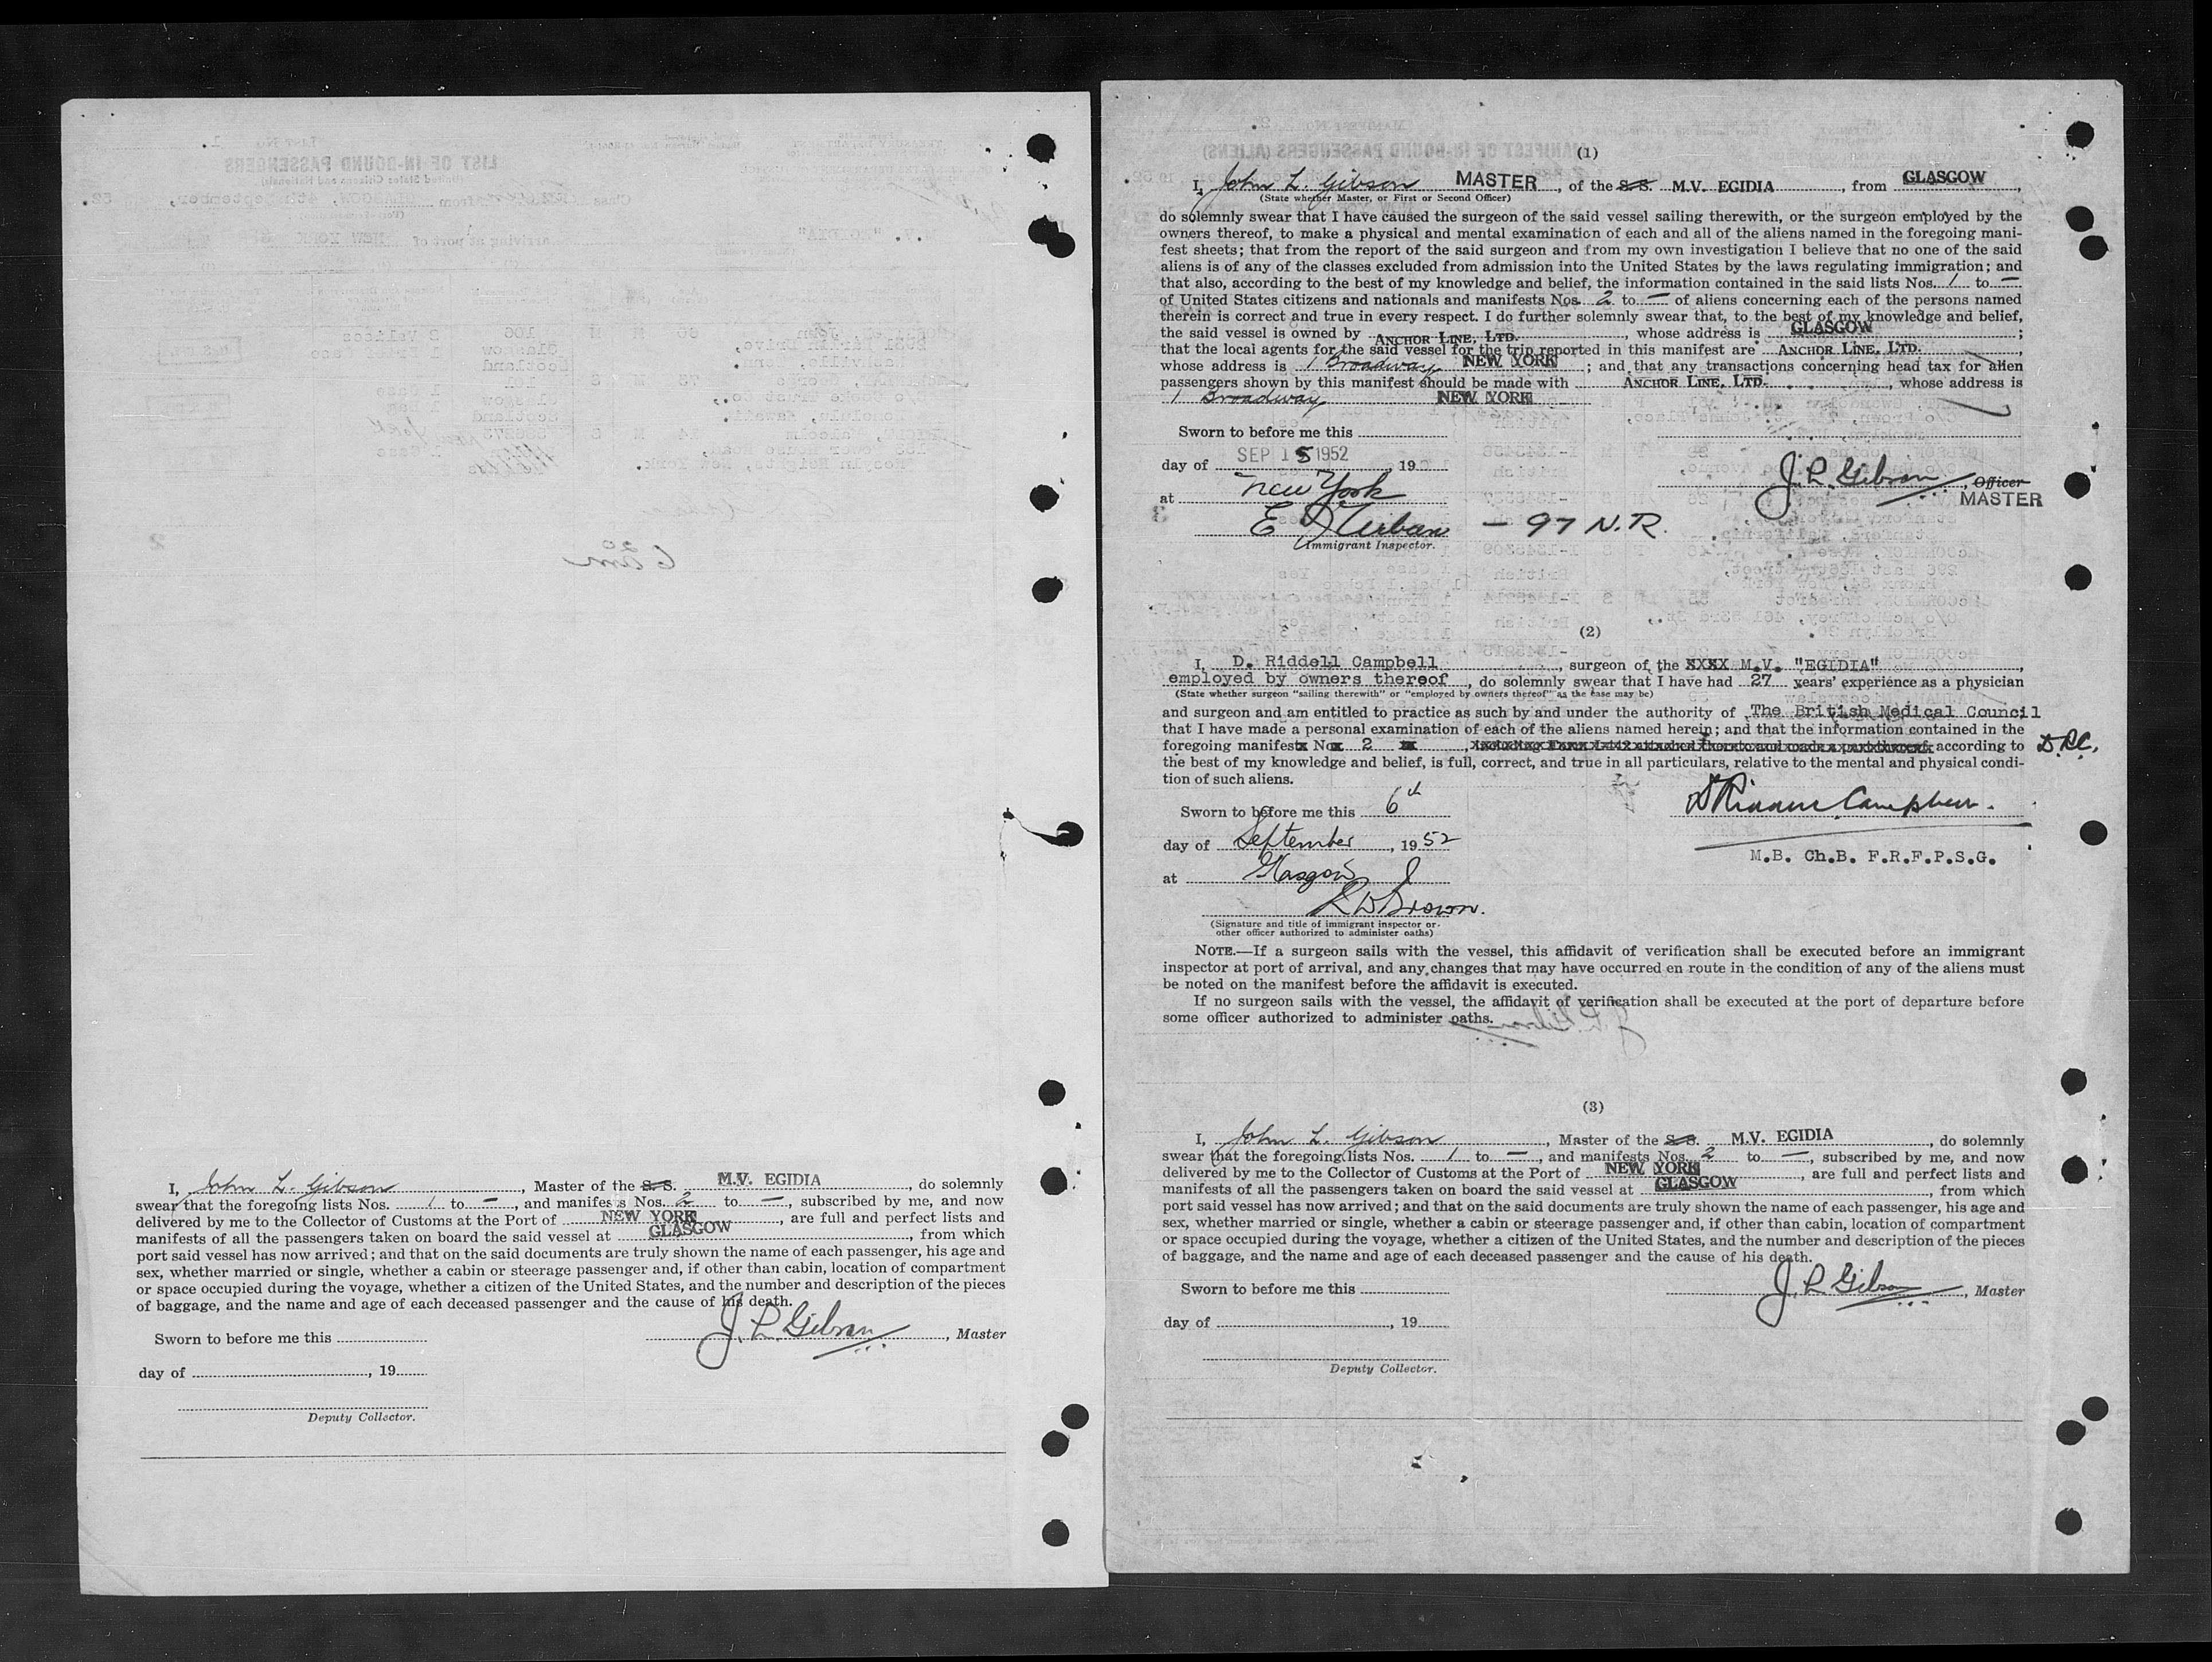 I, John L. Gibson, Master of the S.S. M.V. EGIDIA, do solemnly
swear that the foregoing lists Nos. 1 to —, and manifests Nos. 2 to —, subscribed by me, and now
delivered by me to the Collector of Customs at the Port of NEW YORK, are full and perfect lists and
manifests of all the passengers taken on board the said vessel at GLASGOW, from which
port said vessel has now arrived; and that on the said documents are truly shown the name of each passenger, his age and
sex, whether married or single, whether a cabin or steerage passenger and, if other than cabin, location of compartment
or space occupied during the voyage, whether a citizen of the United States, and the number and description of the pieces
of baggage, and the name and age of each deceased passenger and the cause of his death.
Sworn to before me this
J. L. Gibson, Master
day of , 19
Deputy Collector.
(1)
I, John L. Gibson MASTER, of the S.S. M.V. EGIDIA, from GLASGOW,
(State whether Master, or First or Second Officer)
do solemnly swear that I have caused the surgeon of the said vessel sailing therewith, or the surgeon employed by the
owners thereof, to make a physical and mental examination of each and all of the aliens named in the foregoing mani-
fest sheets; that from the report of the said surgeon and from my own investigation I believe that no one of the said
aliens is of any of the classes excluded from admission into the United States by the laws regulating immigration; and
that also, according to the best of my knowledge and belief, the information contained in the said lists Nos. 1 to —
of United States citizens and nationals and manifests Nos. 2 to — of aliens concerning each of the persons named
therein is correct and true in every respect. I do further solemnly swear that, to the best of my knowledge and belief,
the said vessel is owned by ANCHOR LINE, LTD., whose address is GLASGOW;
that the local agents for the said vessel for the trip reported in this manifest are ANCHOR LINE, LTD.,
whose address is 1 Broadway NEW YORK; and that any transactions concerning head tax for alien
passengers shown by this manifest should be made with ANCHOR LINE, LTD., whose address is
1 Broadway NEW YORK
Sworn to before me this
day of SEP 15 1952, 19
J. L. Gibson, Officer
MASTER
at New York
E J Urban — 97 N.R.
Immigrant Inspector.
(2)
I, D. Riddell Campbell, surgeon of the XXXX M.V. "EGIDIA",
employed by owners thereof, do solemnly swear that I have had 27 years' experience as a physician
(State whether surgeon "sailing therewith" or "employed by owners thereof" as the case may be)
and surgeon and am entitled to practice as such by and under the authority of The British Medical Council
that I have made a personal examination of each of the aliens named herein; and that the information contained in the
foregoing manifest No 2, according to D.R.C.
the best of my knowledge and belief, is full, correct, and true in all particulars, relative to the mental and physical condi-
tion of such aliens.
Sworn to before me this 6th
D Riddell Campbell.
day of September, 1952
M.B. Ch.B. F.R.F.P.S.G.
at Glasgow
R W Brown.
(Signature and title of immigrant inspector or
other officer authorized to administer oaths)
NOTE.—If a surgeon sails with the vessel, this affidavit of verification shall be executed before an immigrant
inspector at port of arrival, and any changes that may have occurred en route in the condition of any of the aliens must
be noted on the manifest before the affidavit is executed.
If no surgeon sails with the vessel, the affidavit of verification shall be executed at the port of departure before
some officer authorized to administer oaths.
(3)
I, John L. Gibson, Master of the S.S. M.V. EGIDIA, do solemnly
swear that the foregoing lists Nos. 1 to —, and manifests Nos. 2 to —, subscribed by me, and now
delivered by me to the Collector of Customs at the Port of NEW YORK, are full and perfect lists and
manifests of all the passengers taken on board the said vessel at GLASGOW, from which
port said vessel has now arrived; and that on the said documents are truly shown the name of each passenger, his age and
sex, whether married or single, whether a cabin or steerage passenger and, if other than cabin, location of compartment
or space occupied during the voyage, whether a citizen of the United States, and the number and description of the pieces
of baggage, and the name and age of each deceased passenger and the cause of his death.
Sworn to before me this
J. L. Gibson, Master
day of , 19
Deputy Collector.